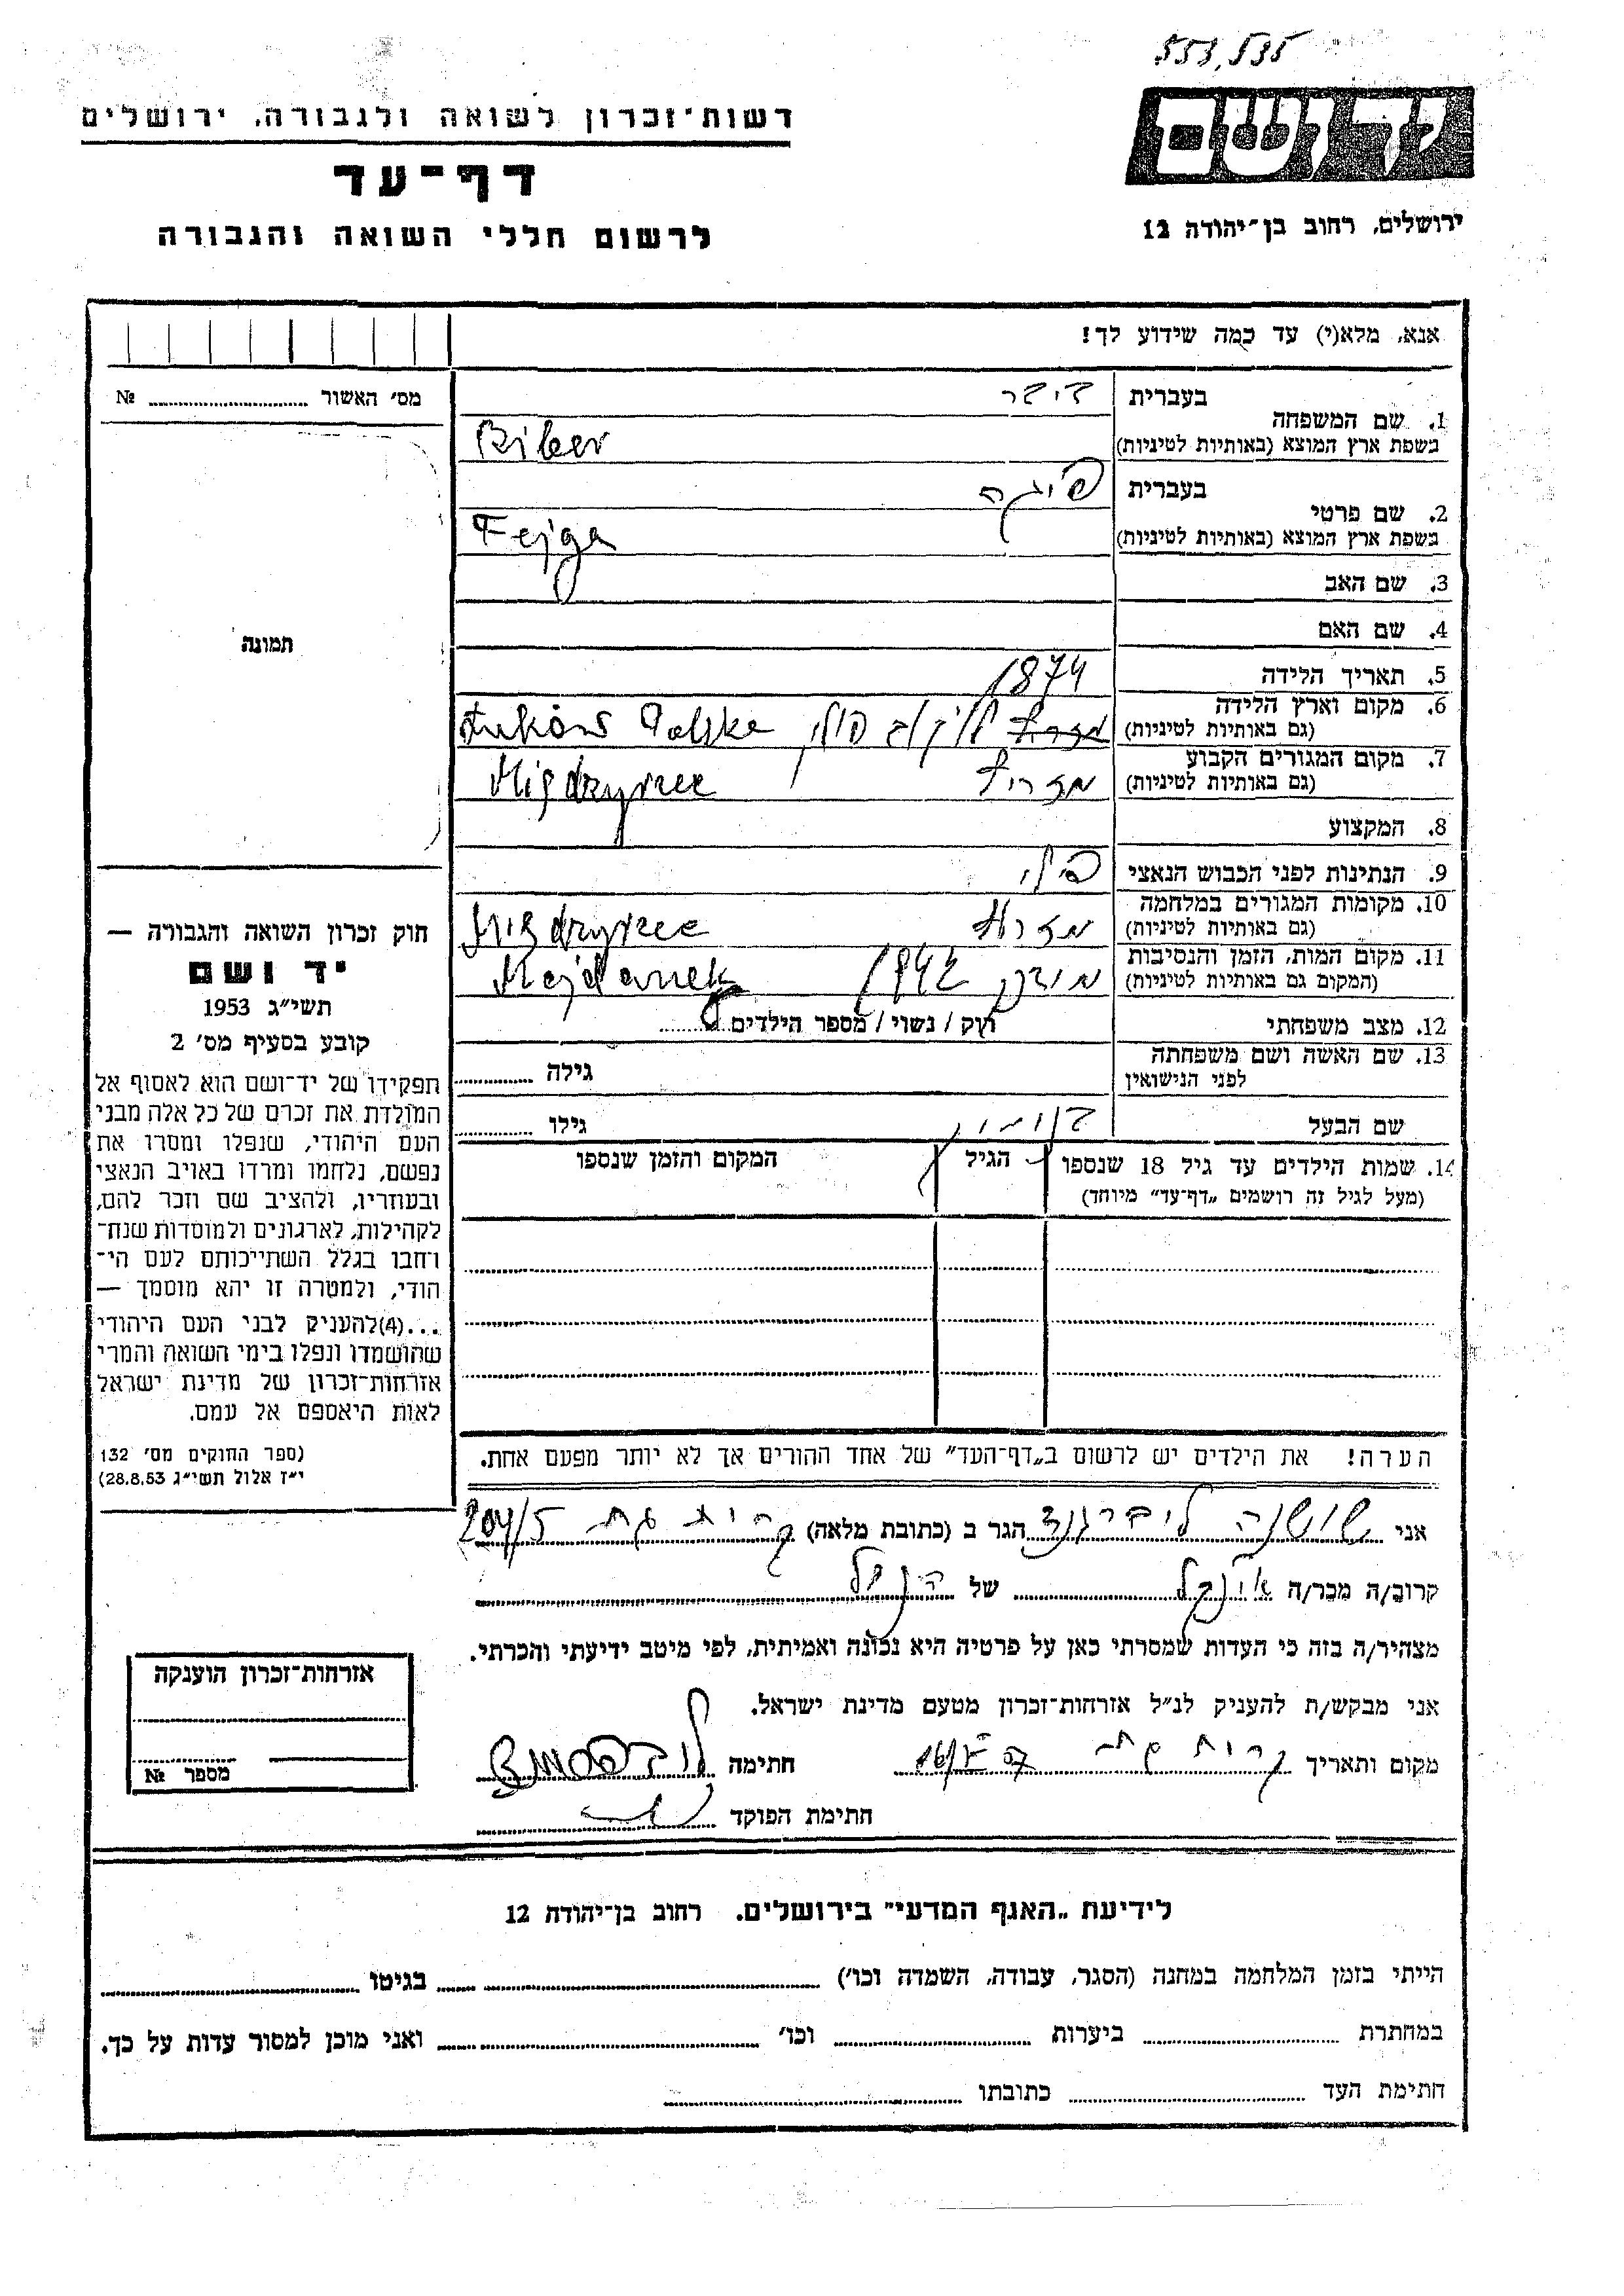 553,535
יד ושם
רשות־זכרון לשואה ולגבורה, ירושלים
דף־עד
לרשום חללי השואה והגבורה
ירושלים, רחוב בן־יהודה 12
אנא, מלא(י) עד כמה שידוע לך!
מס׳ האשור № 
תמונה
1. שם המשפחה
בעברית ביבר
בשפת ארץ המוצא (באותיות לטיניות) Biber
2. שם פרטי
בעברית פיגה
בשפת ארץ המוצא (באותיות לטיניות) Fejga
3. שם האב
4. שם האם
5. תאריך הלידה 1874
6. מקום וארץ הלידה
(גם באותיות לטיניות) לוקוב פולין Łuków Polska
7. מקום המגורים הקבוע
(גם באותיות לטיניות) מזריץ Międzyrzec
8. המקצוע
9. הנתינות לפני הכבוש הנאצי פולני
10. מקומות המגורים במלחמה
(גם באותיות לטיניות) מזריץ Międzyrzec
11. מקום המות, הזמן והנסיבות
(המקום גם באותיות לטיניות) מידנק 1942 Majdanek
12. מצב משפחתי רוק / נשוי / מספר הילדים
13. שם האשה ושם משפחתה
לפני הנישואין גילה
שם הבעל גילו
14. שמות הילדים עד גיל 18 שנספו הגיל המקום והזמן שנספו
(מעל לגיל זה רושמים „דף־עד״ מיוחד)
הערה! את הילדים יש לרשום ב„דף־העד״ של אחד ההורים אך לא יותר מפעם אחת.
חוק זכרון השואה והגבורה —
יד ושם
תשי״ג 1953
קובע בסעיף מס׳ 2
תפקידו של יד־ושם הוא לאסוף אל
המולדת את זכרם של כל אלה מבני
העם היהודי, שנפלו ומסרו את
נפשם, נלחמו ומרדו באויב הנאצי
ובעוזריו, ולהציב שם וזכר להם,
לקהילות, לארגונים ולמוסדות שנח־
רבו בגלל השתייכותם לעם הי־
הודי, ולמטרה זו יהא מוסמך —
...(4)להעניק לבני העם היהודי
שהושמדו ונפלו בימי השואה והמרי
אזרחות־זכרון של מדינת ישראל
לאות היאספם אל עמם.
(ספר החוקים מס׳ 132
י״ז אלול תשי״ג 28.8.53)
אני שושנה ליברגוז הגר ב (כתובת מלאה) קרית גת 204/5
קרוב/ה מכר/ה של הנ״ל
מצהיר/ה בזה כי העדות שמסרתי כאן על פרטיה היא נכונה ואמיתית, לפי מיטב ידיעתי והכרתי.
אני מבקש/ת להעניק לנ״ל אזרחות־זכרון מטעם מדינת ישראל.
מקום ותאריך קרית גת חתימה
חתימת הפוקד
אזרחות־זכרון הוענקה
מספר №
לידיעת „האגף המדעי״ בירושלים. רחוב בן־יהודה 12
הייתי בזמן המלחמה במחנה (הסגר, עבודה, השמדה וכו׳) בגיטו
במחתרת ביערות וכו׳ ואני מוכן למסור עדות על כך.
חתימת העד כתובתו